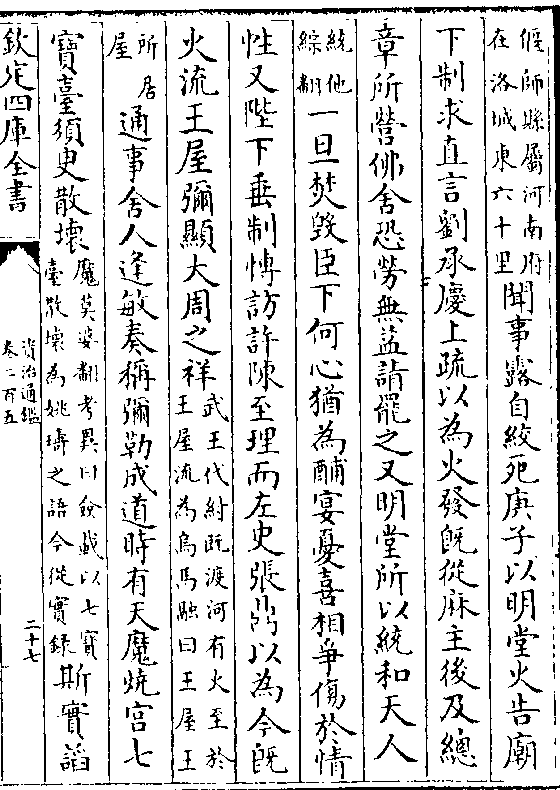 偃師縣屬河南府
在洛城東六十里
聞事露自絞死庚子以明堂火告廟
下制求直言劉承慶上疏以為火發既從麻主後及總
章所營佛舍恐勞無益請罷之又明堂所以統和天人
統他
綜翻
一旦焚毀臣下何心猶為酺宴憂喜相爭傷於情
性又陛下垂制愽訪許陳至理而左史張鼎以為今既
火流王屋彌顯大周之祥
武王伐紂既渡河有火至於
王屋流為烏馬融曰王屋王
所居
屋
通事舍人逢敏奏稱彌勒成道時有天魔燒宫七
寶臺須臾散壞
魔莫婆翻考異曰僉載以七寳
臺散壞為姚璹之語今從實錄
斯實謟
欽定四庫全書
資治通鑑
卷二百五
二十七